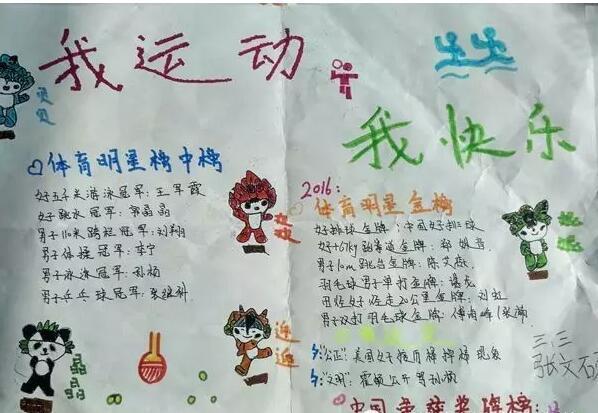 我运动
我快乐
贝贝
体育明星榜中榜
女子五千米游泳冠军:王军霞
女子跳水冠军:郭晶晶
男子110米跨栏冠军:刘翔
男子体操冠军:李宁
男子游泳冠军:孙杨
男子乒乓球冠军:张继科
欢欢
晶晶
迎迎
2016:
体育明星金榜
女子排球金牌:中国女子排球
女子67kg跆拳道金牌:郑姝音
男子10m跳台金牌:陈艾森
羽毛球男子单打金牌:谌龙
田径女子竞走20公里金牌:刘虹
男子双打羽毛球金牌:傅海峰/张楠
妮妮
公正:美国女子接力棒掉棒
文明:霍顿公开骂孙杨
三三
张文硕
中国争获奖牌榜: